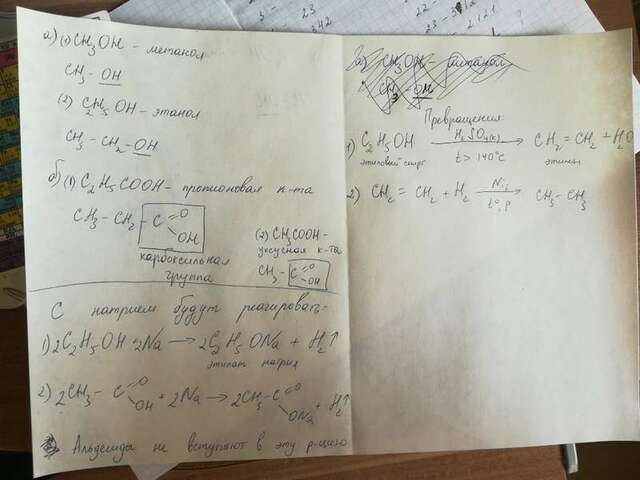 а) (1) CH3OH - метанол
CH3 - OH
(2) C2H5OH - этанол
CH3 - CH2 - OH
б) (1) C2H5COOH - пропионовая к-та
CH3 - CH2 - C =O
OH
карбоксильная
группа
(2) CH3COOH -
уксусная к-та
CH3 - C =O
OH
С натрием будут реагировать:
1) 2C2H5OH + 2Na → 2C2H5ONa + H2↑
этилат натрия
2) 2CH3 - C =O
OH + 2Na → 2CH3 - C =O
ONa + H2↑
Альдегиды не вступают в эту р-цию
а) CH3OH - метанол
CH3 - OH
Превращения
1) C2H5OH H2SO4(к) → CH2 = CH2 + H2O
этиловый спирт t > 140°C этилен
2) CH2 = CH2 + H2 Ni, t°, p → CH3 - CH3
23 -
342
22 -
23 - 
2.121